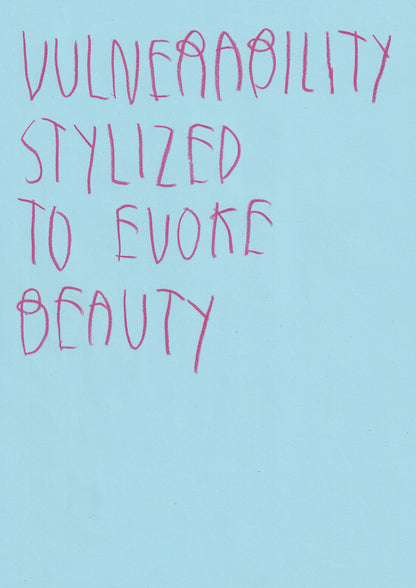 VULNERABILITY
STYLIZED
TO EVOKE
BEAUTY